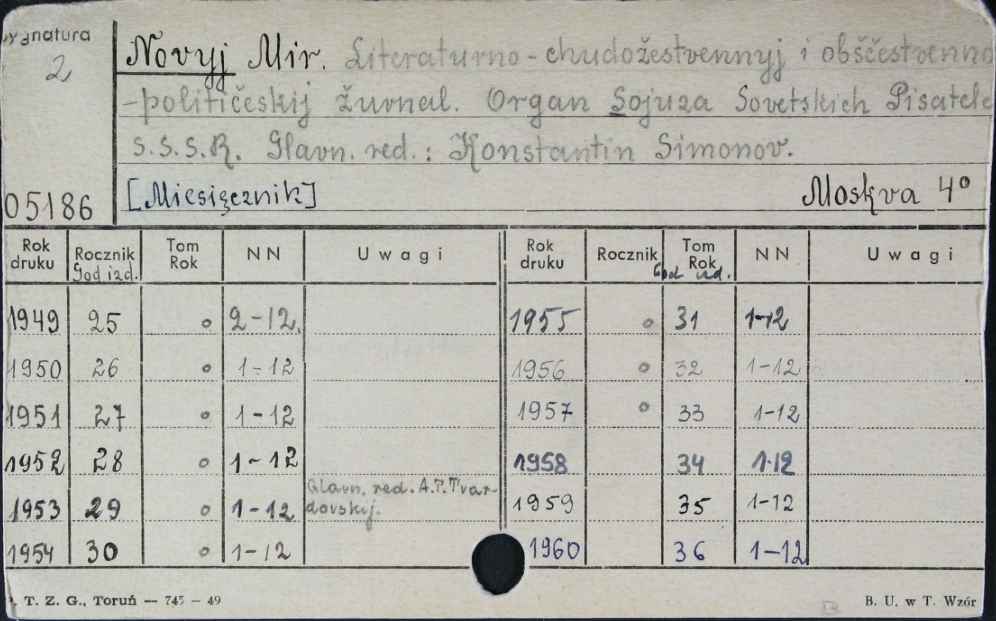 Sygnatura
2
05186
Novyj Mir. Literaturno-chudožestvennyj i obščestvenno
-političeskij žurnal. Organ Sojuza Sovetskich Pisatele
S.S.S.R. Glavn. red.: Konstantin Simonov.
[Miesięcznik] Moskva 4°
Rok druku Rocznik God izd. Tom Rok NN Uwagi Rok druku Rocznik Tom Rok God izd. NN Uwagi
1949 25 o 2-12. 1955 o 31 1-12
1950 26 o 1-12 1956 o 32 1-12
1951 27 o 1-12 1957 o 33 1-12
1952 28 o 1-12 1958 34 1-12
1953 29 o 1-12 Glavn. red. A.T. Tvar-
dovskij. 1959 35 1-12
1954 30 o 1-12 1960 36 1-12
T. Z. G., Toruń — 745 — 49 B. U. w T. Wzór